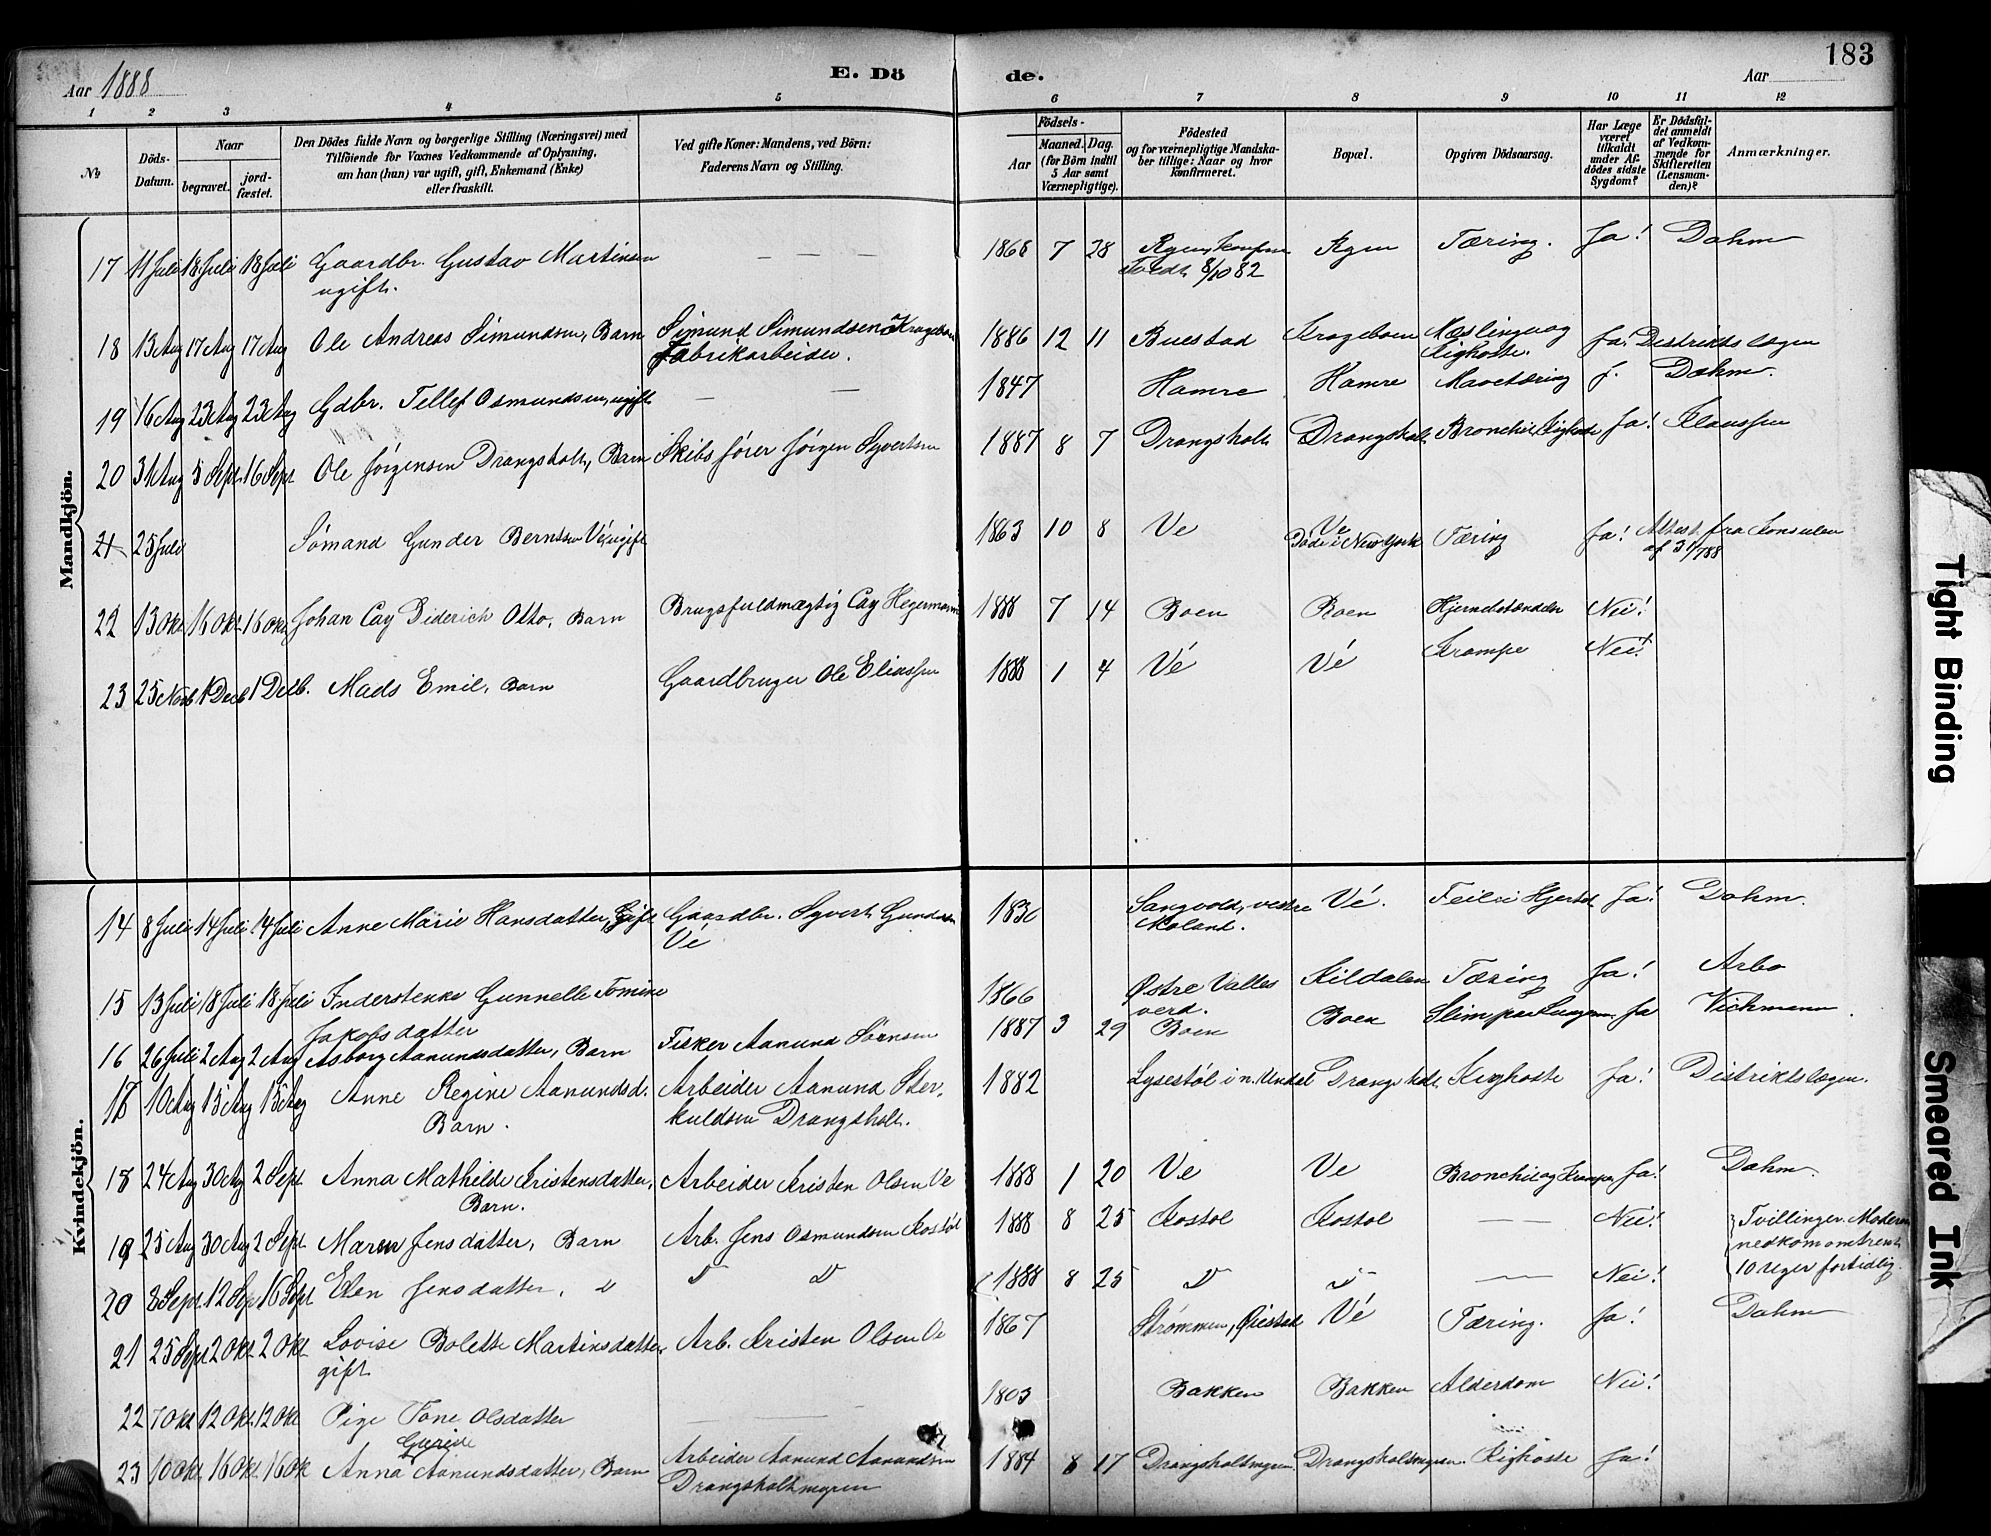 183
Aar 1888
E. Dö
de.
Aar
1 2 3 4 5 6 7 8 9 10 11 12
No
Döds-Datum.
Naar
begravet.
jord-fæstet.
Den Dödes fulde Navn og borgerlige Stilling (Næringsvei) med
Tilföiende for Voxnes Vedkommende af Oplysning,
om han (hun) var ugift, gift, Enkemand (Enke)
eller fraskilt.
Ved gifte Koner: Mandens, ved Börn:
Faderens Navn og Stilling.
Födsels-
Aar
Maaned. Dag.
(for Börn indtil
5 Aar samt
Værnepligtige).
Födested
og for værnepligtige Mandska-
ber tillige: Naar og hvor
konfirmeret.
Bopæl.
Opgiven Dödsaarsag.
Har Læge
været
tilkaldt
under Af-
dödes sidste
Sygdom?
Er Dödsfal-
det anmeldt
af Vedkom-
mende for
Skifteretten
(Lensman-
den)?
Anmærkninger.
Mandkjön.
17 11 Juli 18 Juli 18 Juli Gaardbr. Gustav Martinsen — — — 1868 7 28 Ryen, konfirm Ryen Tæring. Ja! Dahm
ugift. Tvedt 8/10 82
18 13 Aug 17 Aug 17 Aug Ole Andreas Simundsen, Barn Simund Simundsen Krageboen 1886 12 11 Buestad Krageboen Mæslinger og Ja! Distriktslægen
Fabrikarbeider. Kighoste.
19 16 Aug 23 Aug 23 Aug Gdbr. Tellef Osmundsen, ugift — — 1847 Hamre Hamre Mavetæring J. Dahm.
20 31 Aug 5 Sept. 16 Sept Ole Jørgensen Drangsholt, Barn Skibsfører Jørgen Syvertsen 1887 8 7 Drangsholt Drangsholt Bronchit, Kighoste Ja! Klaussen
21 25 Juli Sømand Gunder Berntsen Vé, ugift 1863 10 8 Ve Ve Tæring Ja! Attest fra Konsulen
Død i New York af 31/7 88
22 13 Okt. 16 Okt. 16 Okt. Johan Cay Diderich Otto, Barn Brugsfuldmægtig Cay Hegermann 1888 7 14 Boen Boen Hjernebetændelse Nei!
23 25 Novb 1 Decb 1 Decb. Mads Emil, Barn Gaardbruger Ole Eliassen 1888 1 4 Vé Vé Krampe Nei!
Kvindekjön.
14 8 Juli 14 Juli 14 Juli Anne Marie Hansdatter, Gift Gaardbr. Syvert Gundersen 1830 Sangvold, vestre Vé. Feil i Hjertet Ja! Dahm.
Vé Moland.
15 13 Juli 18 Juli 18 Juli Inderstenke Gunnelle Tomine 1866 Østre Valles Kildalen Tæring Ja! Arbo
Jakobsdatter verd.
16 26 Juli 2 Aug 2 Aug Asborg Aanundsdatter, Barn Fisker Aanund Sørensen 1887 3 29 Boen Boen Slim paa Lungerne Ja Vichmann
17 10 Aug 15 Aug 15 Aug Anne Regine Aanundsd. Arbeider Aanund Ster- 1882 Lysestøl i n. Undal Drangsholt, Kighoste Ja! Distriktslægen.
Barn. kuldsen Drangsholt.
18 24 Aug 30 Aug 2 Sept. Anna Mathilde Kristensdatter, Arbeider Kristen Olsen Ve 1888 1 20 Ve Ve Bronchit og Krampe Ja! Dahm.
Barn.
19 25 Aug 30 Aug 2 Sept. Maren Jensdatter, Barn Arb. Jens Osmundsen Kostøl 1888 8 25 Kostøl Kostøl — — Nei! Tvillinger. Moderen
nedkom omtrent
20 8 Sept. 12 Sept 16 Sept Elen Jensdatter, D D D 1888 8 25 D D — Nei! 10 Uger fortidlig.
21 25 Sept 2 Okt. 2 Okt. Lovise Bolette Martinsdatter, Arb. Kristen Olsen Ve 1867 Strømmen, Øiestad Vé Tæring. Ja! Dahm
gift
22 7 Okt 12 Okt. 12 Okt Pige Tone Olsdatter — — 1803 Bakken Bakken Alderdom Nei!
Gurine
23 10 Okt. 16 Okt. 16 Ok Anna Aanundsdatter, Barn Arbeider Aanund Aanundsen 1884 8 17 Drangsholtmyren. Drangsholtmyren. Kighoste Ja!
Drangsholtmyren
Tight Binding
Smeared Ink